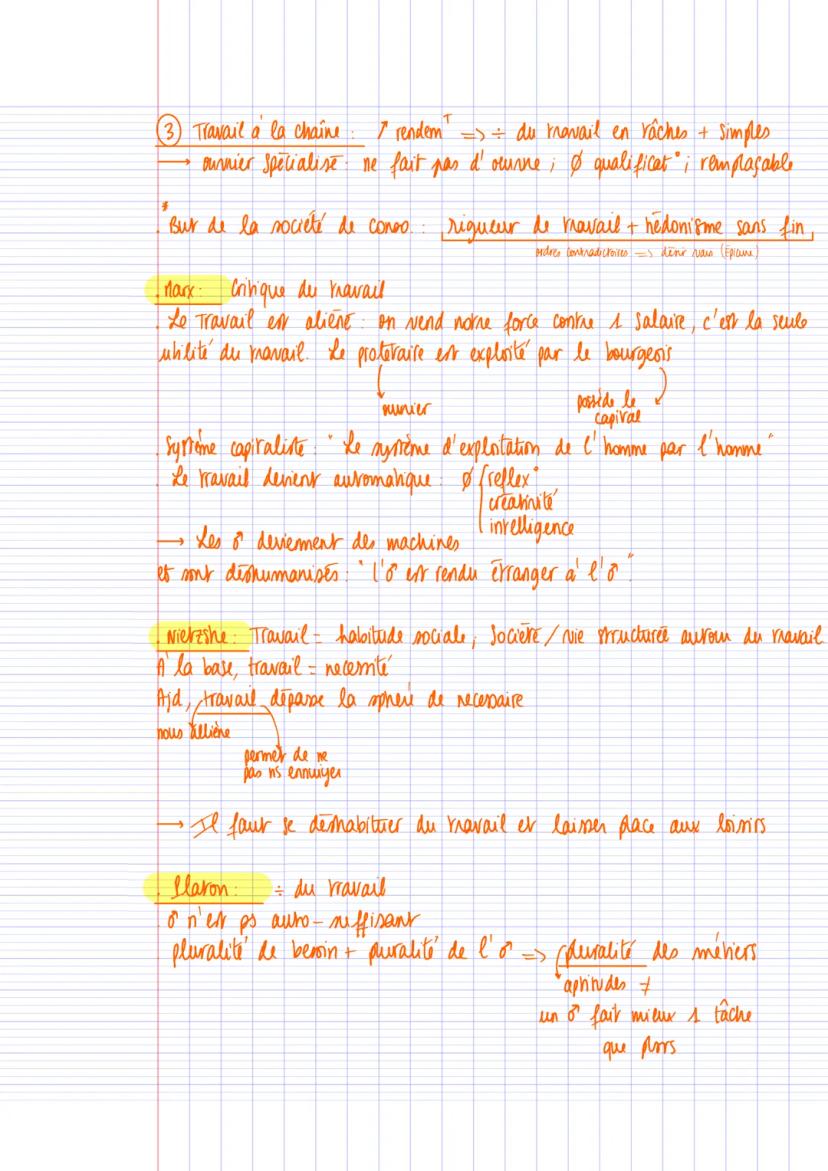 ③ Travail à la chaîne : ↗ rendem^T => ÷ du travail en tâches + simples
→ ouvrier spécialisé : ne fait pas d'œuvre ; Ø qualificat° ; remplaçable
* . But de la société de conso. : rigueur de travail + hédonisme sans fin
ordres contradictoires => désir vain (Épicure)
. Marx : Critique du travail
. Le travail est aliéné : on vend notre force contre 1 salaire, c'est la seule
utilité du travail. Le prolétaire est exploité par le bourgeois
ouvrier
possède le
capital
. Système capitaliste : "Le système d'exploitation de l'homme par l'homme"
. Le travail devient automatique : Ø { reflex°
créativité
intelligence
→ Les ♂ deviennent des machines
et sont déshumanisés : "l'♂ est rendu étranger à l'♂".
. Nietzshe : Travail = habitude sociale ; Société / vie structurée autour du travail
À la base, travail = necessité
Ajd, travail dépasse la sphère de necessaire
nous alliène
permet de ne
pas ns ennuiyer
→ Il faut se déshabituer du travail et laisser place aux loisirs
. Platon : ÷ du travail
. ♂ n'est ps auto-suffisant
. pluralité de besoin + pluralité de l'♂ => pluralité des métiers
aptitudes ≠
un ♂ fait mieux 1 tâche
que plsrs